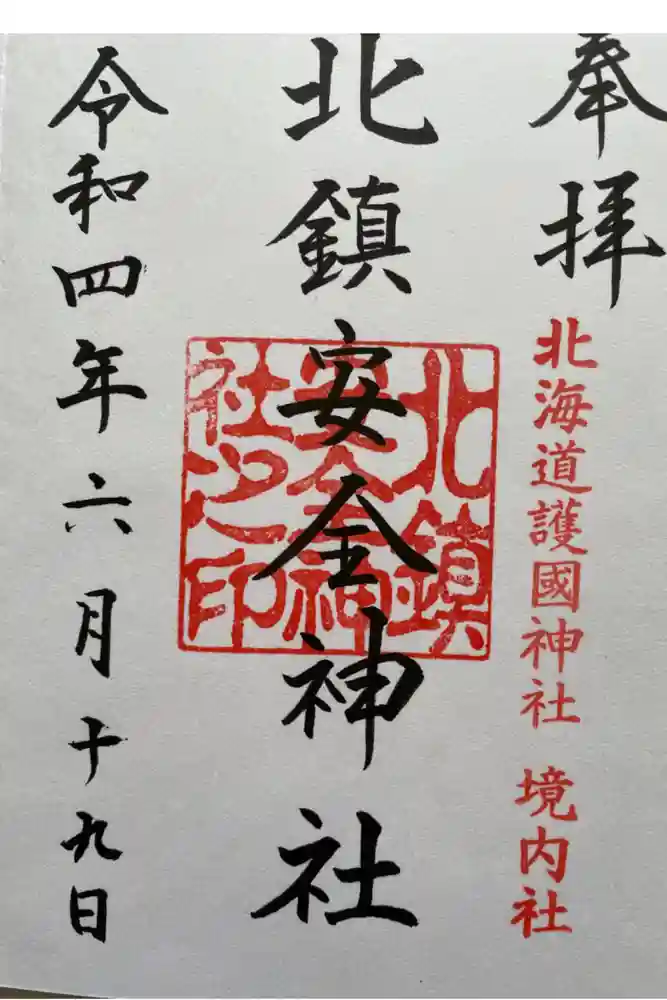 奉拝
北海道護國神社 境内社
北鎮安全神社
北鎮
安全神
社之印
令和四年六月十九日